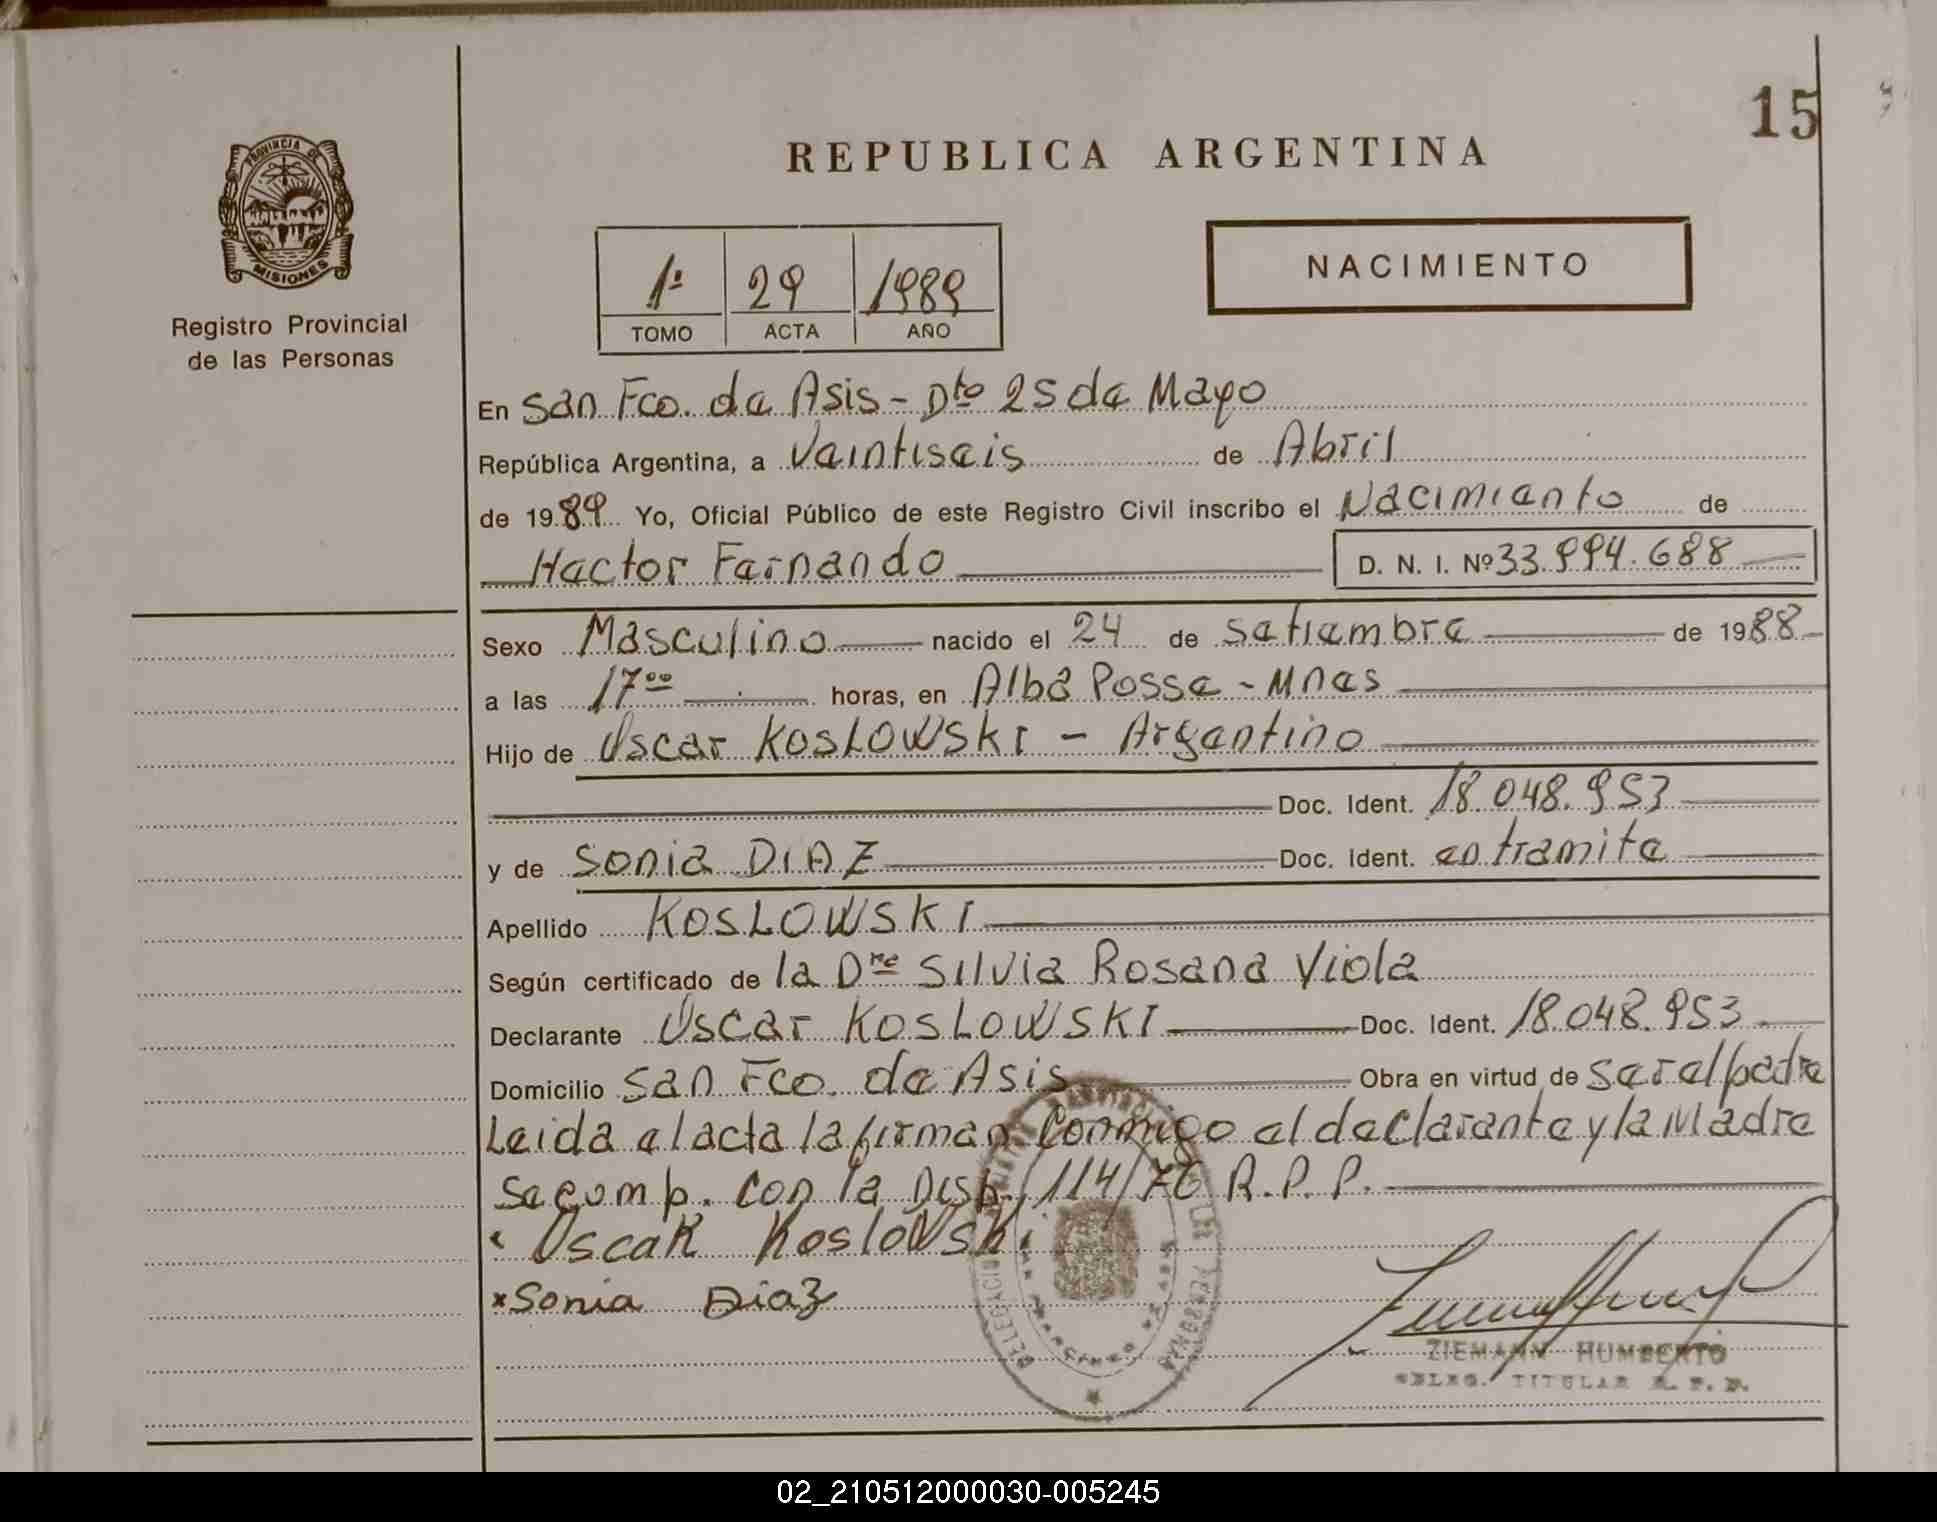 15
PROVINCIA DE
MISIONES
Registro Provincial
de las Personas
REPUBLICA ARGENTINA
1º 29 1989
TOMO ACTA AÑO
NACIMIENTO
En San Fco. de Asis - Dto 25 de Mayo
República Argentina, a Veintiseis de Abril
de 1989 Yo, Oficial Público de este Registro Civil inscribo el Nacimiento de
Hector Fernando D. N. I. Nº 33.994.688
Sexo Masculino nacido el 24 de setiembre de 1988
a las 17 00 horas, en Alba Posse - Mnes
Hijo de Oscar KOSLOWSKI - Argentino
Doc. Ident. 18.048.953
y de Sonia DIAZ Doc. Ident. en tramite
Apellido KOSLOWSKI
Según certificado de la Dre Silvia Rosana Viola
Declarante Oscar KOSLOWSKI Doc. Ident. 18.048.953
Domicilio San Fco. de Asis Obra en virtud de ser el padre
Leida el acta la firman conmigo el declarante y la Madre
se comp. con la Disp. 114/76 R.P.P.
Oscar Koslowski
x Sonia Diaz
ZIEMANN HUMBERTO
DELEG. TITULAR R. P. P.
02_210512000030-005245